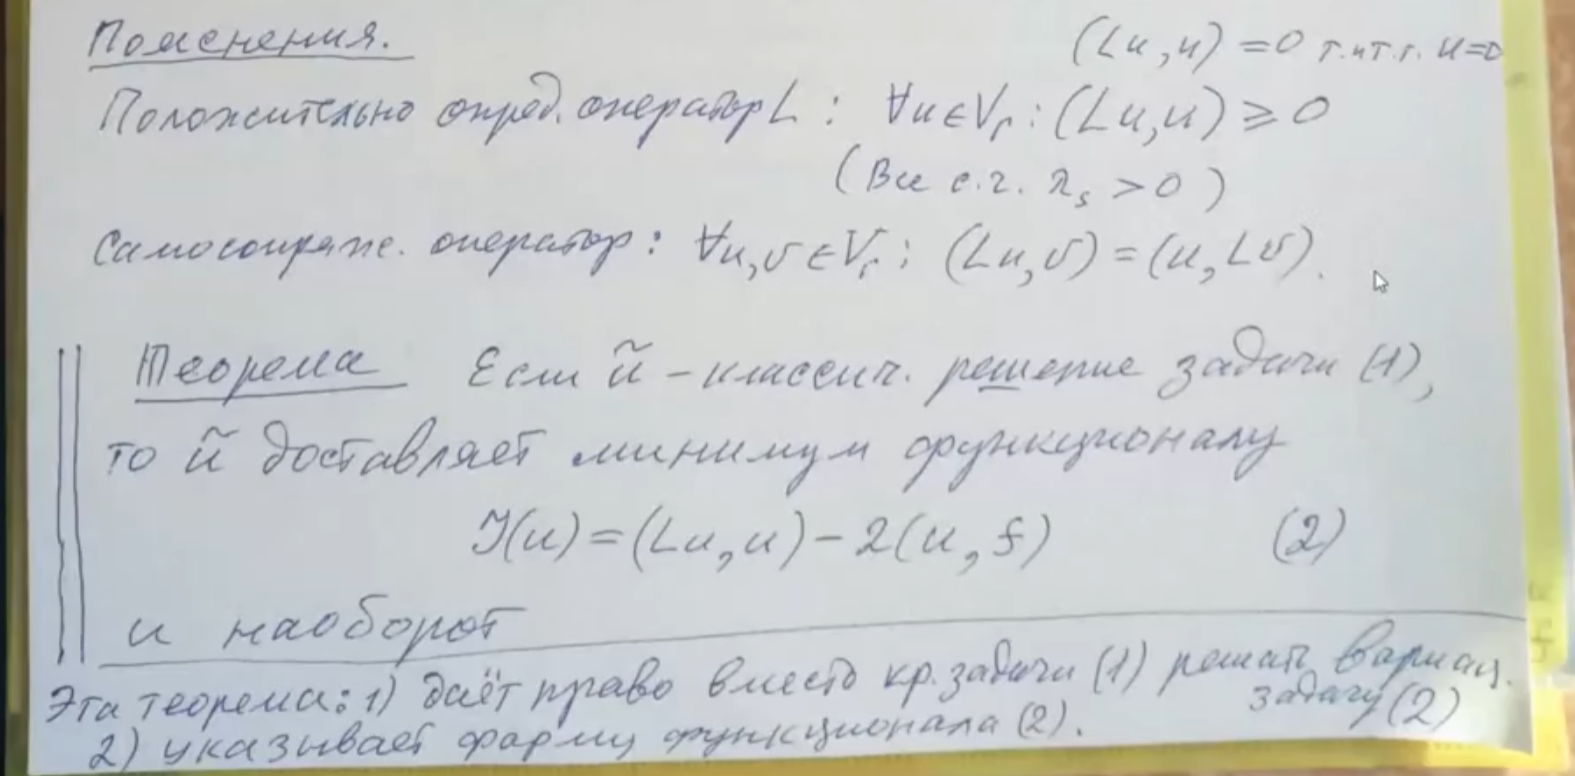 Пояснения.
(Lu, u) = 0 т.и т.т. u=0
Положительно опред. оператор L : ∀u∈V_Γ : (Lu, u) ⩾ 0
(Все с.ч. λ_s > 0)
Самосопряж. оператор : ∀u, v ∈ V_Γ : (Lu, v) = (u, Lv).
Теорема Если ũ – классич. решение задачи (1),
то ũ доставляет минимум функционалу
J(u) = (Lu, u) – 2(u, f) (2)
и наоборот
Эта теорема: 1) даёт право вместо кр. задачи (1) решать вариац.
задачу (2)
2) указывает форму функционала (2).